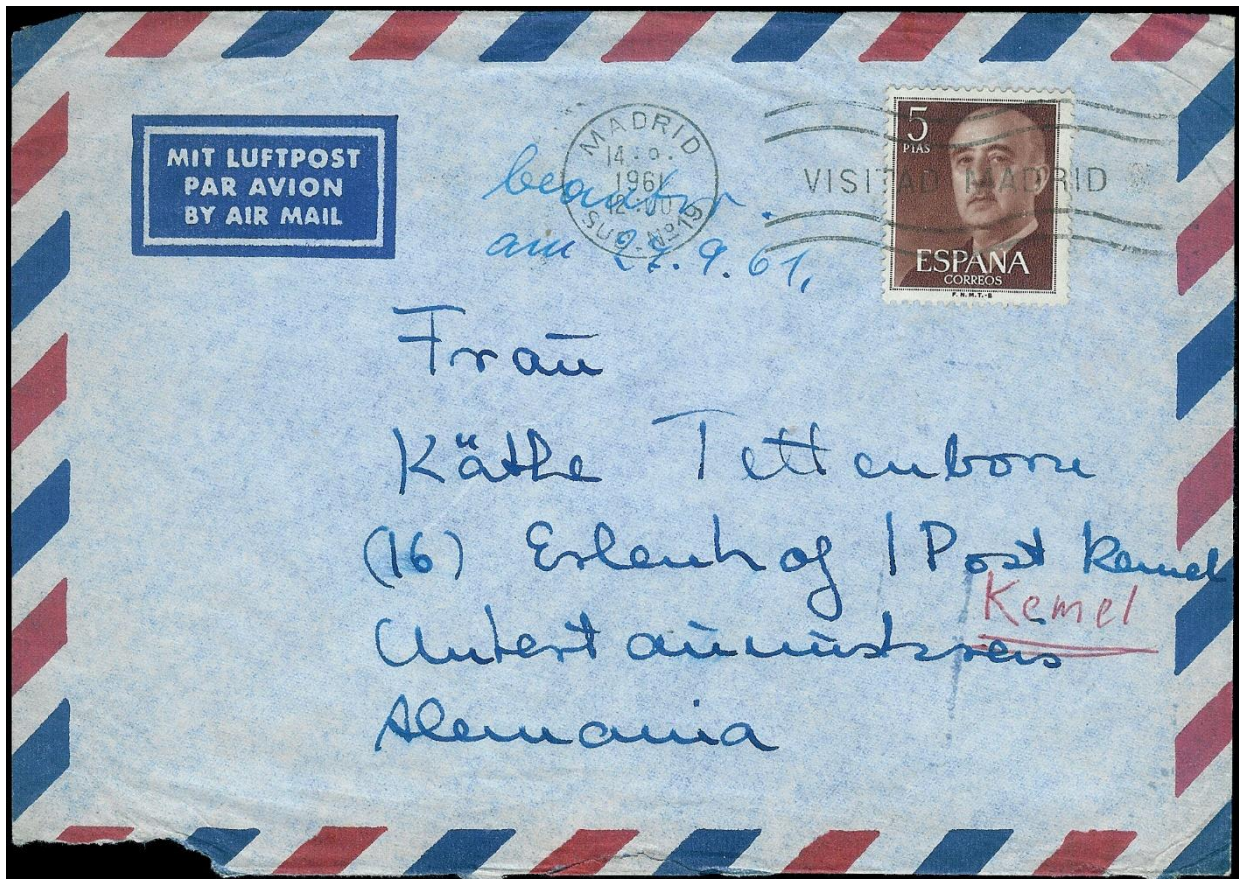 MIT LUFTPOST
PAR AVION
BY AIR MAIL
MADRID
1961
SUC. Nº 19
VISITAD MADRID
5
PTAS
ESPAÑA
CORREOS
F.N.M.T.-B
beantw.
am 27.9.61.
Frau
Käthe Tettenborn
(16) Erlenhof / Post Kemel
Kemel
Untertaunuskreis
Alemania